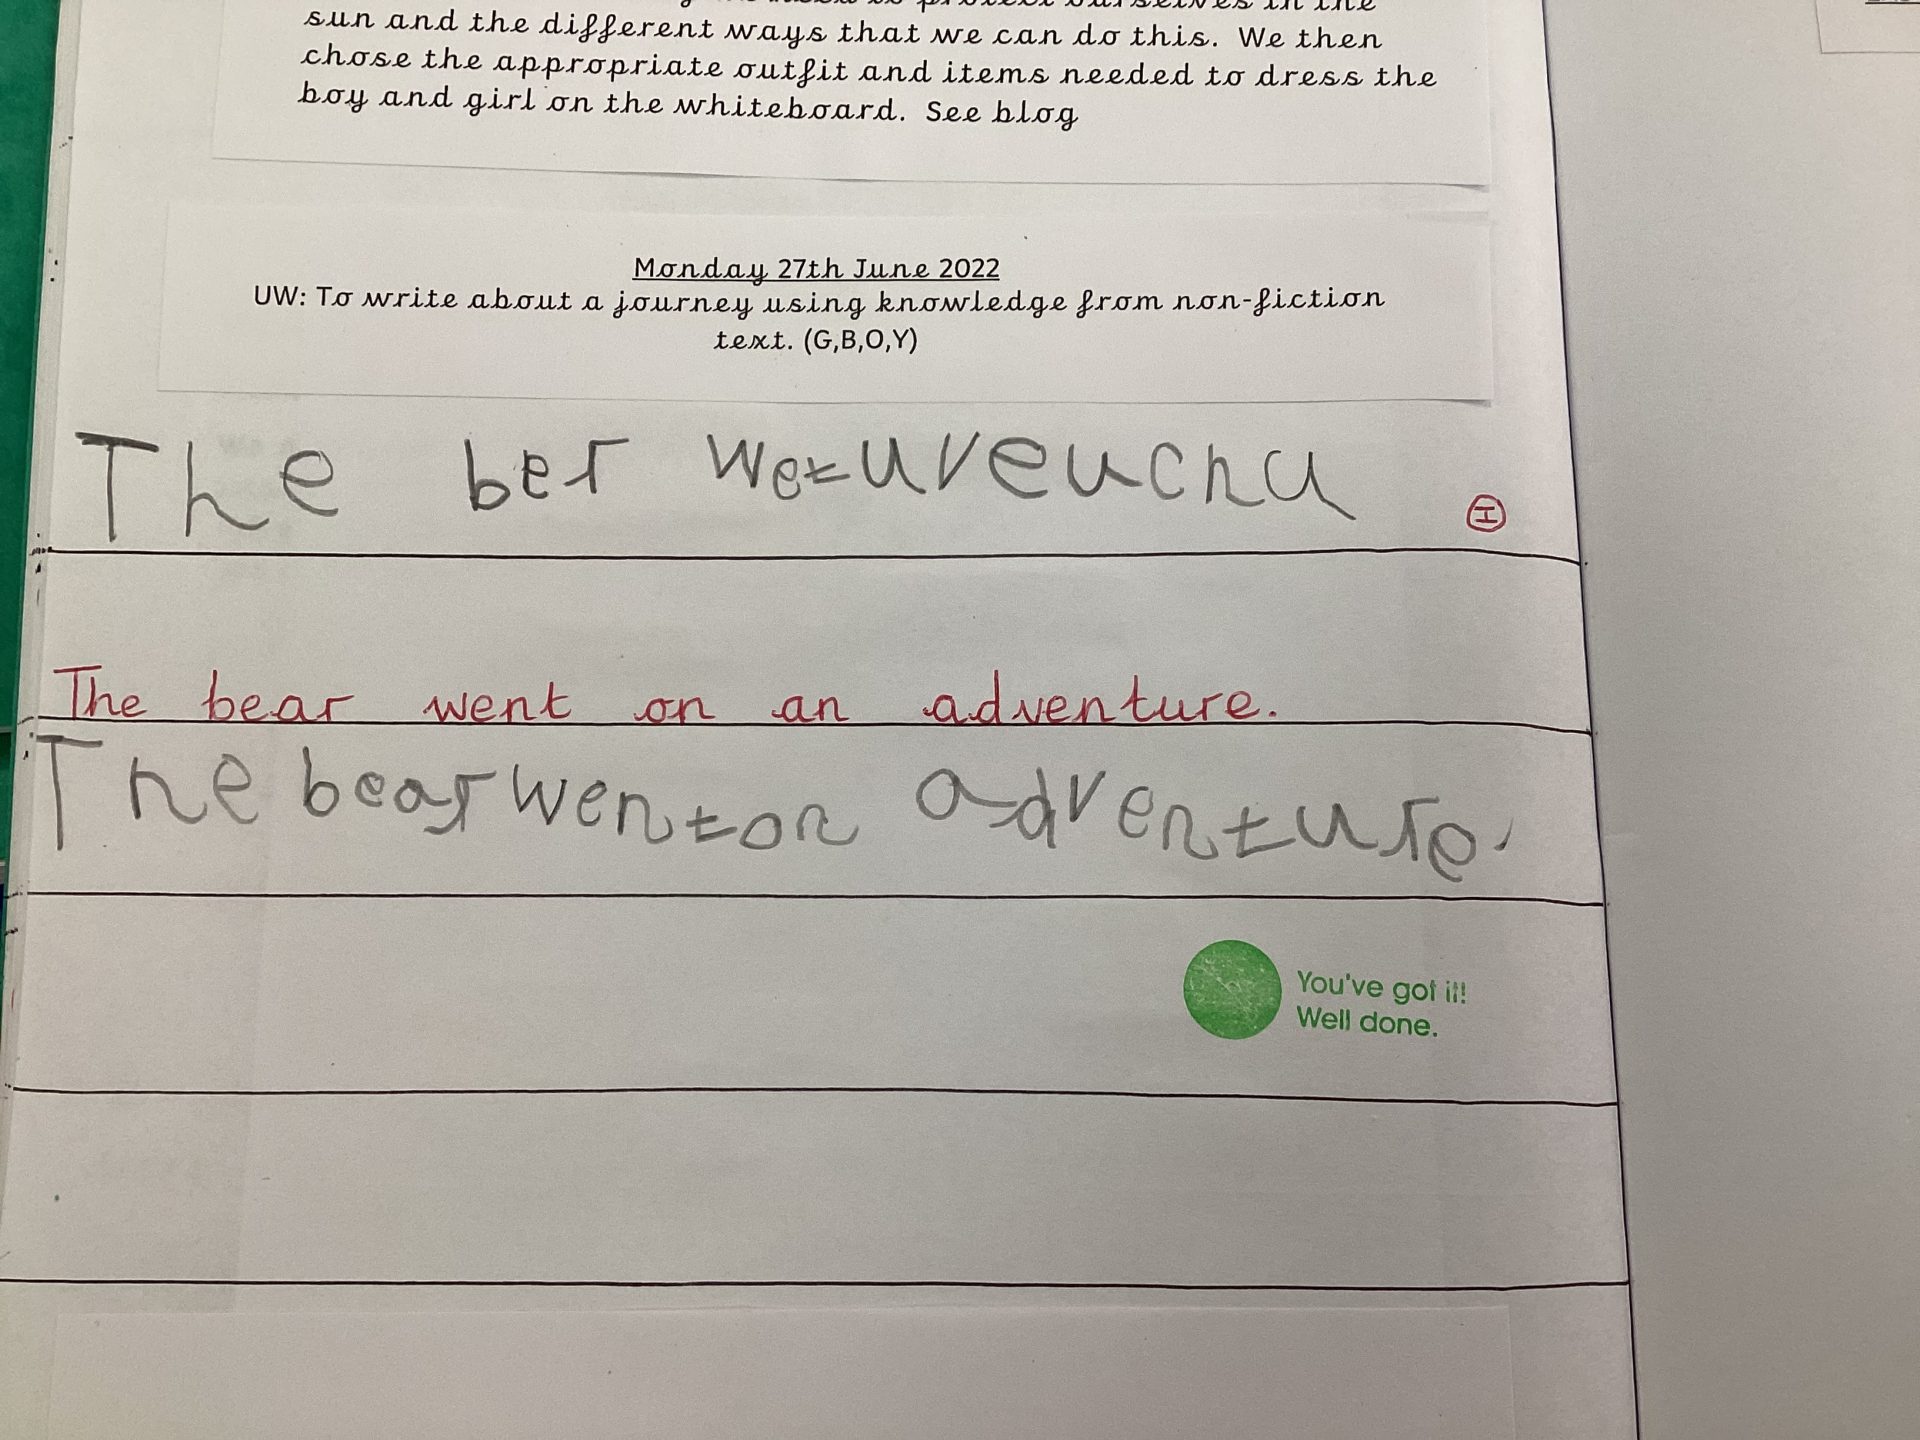 protect ourselves in the
sun and the different ways that we can do this. We then
chose the appropriate outfit and items needed to dress the
boy and girl on the whiteboard. See blog
Monday 27th June 2022
UW: To write about a journey using knowledge from non-fiction
text. (G,B,O,Y)
The ber wetuveucnu
I
The bear went on an adventure.
The bear went on adventure.
You've got it!
Well done.